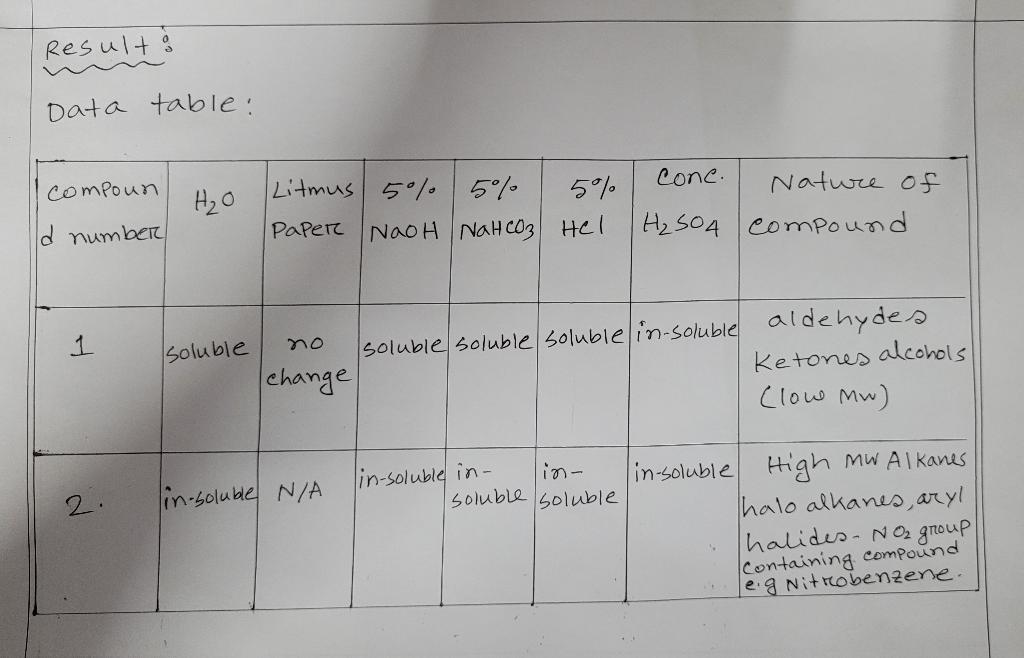 Result:
Data table:
compoun
d number
H2O
Litmus
Paper
5%
NaOH
5%
NaHCO3
5%
HCl
Conc.
H2SO4
Nature of
compound
1
soluble
no
change
soluble
soluble
soluble
in-soluble
aldehydes
Ketones alcohols
(low Mw)
2.
in-soluble
N/A
in-soluble
in-
soluble
in-
soluble
in-soluble
High MW Alkanes
halo alkanes, aryl
halides - NO2 group
containing compound
e.g Nitrobenzene.